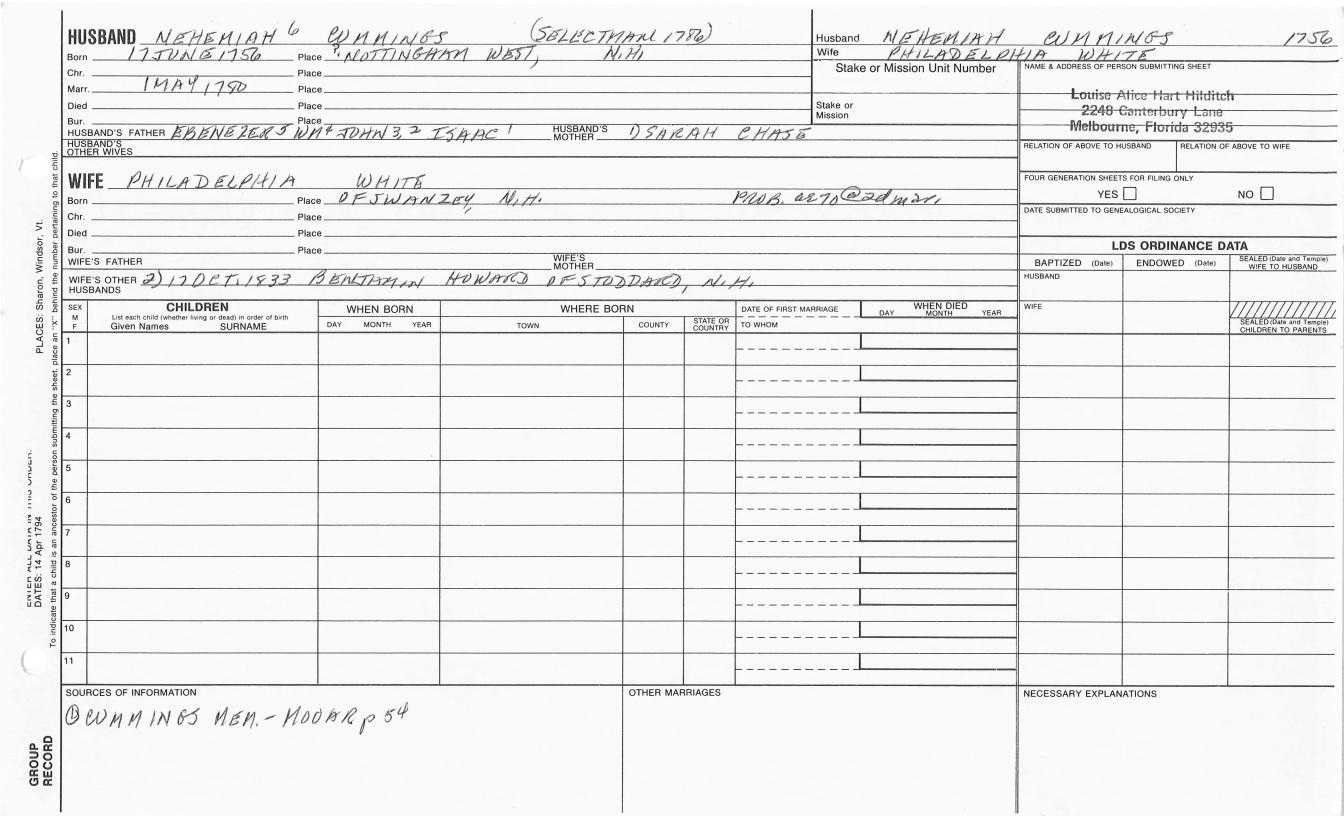 HUSBAND NEHEMIAH 6 CUMMINGS (SELECTMAN 1786)
Born 17 JUNE 1756 Place ? NOTTINGHAM WEST, N.H.
Chr. Place
Marr. 1 MAY 1780 Place
Died Place
Bur. Place
HUSBAND'S FATHER EBENEZER 5 WM 4 JOHN 3, 2 ISAAC 1 HUSBAND'S MOTHER SARAH CHASE
HUSBAND'S OTHER WIVES
WIFE PHILADELPHIA WHITE
Born Place OF SWANZEY, N.H. PROB.
Chr. Place
Died Place
Bur. Place
WIFE'S FATHER WIFE'S MOTHER
WIFE'S OTHER HUSBANDS 2) 17 OCT. 1833 BENJAMIN HOWARD OF STODDARD, N.H.
Husband NEHEMIAH CUMMINGS 1756
Wife PHILADELPHIA WHITE
Stake or Mission Unit Number
Stake or Mission
NAME & ADDRESS OF PERSON SUBMITTING SHEET
Louise Alice Hart Hilditch
2248 Canterbury Lane
Melbourne, Florida 32935
RELATION OF ABOVE TO HUSBAND RELATION OF ABOVE TO WIFE
FOUR GENERATION SHEETS FOR FILING ONLY
YES NO
DATE SUBMITTED TO GENEALOGICAL SOCIETY
LDS ORDINANCE DATA
BAPTIZED (Date) ENDOWED (Date) SEALED (Date and Temple) WIFE TO HUSBAND
HUSBAND
WIFE
SEALED (Date and Temple) CHILDREN TO PARENTS
SEX M F
CHILDREN
List each child (whether living or dead) in order of birth
Given Names SURNAME
WHEN BORN
DAY MONTH YEAR
WHERE BORN
TOWN COUNTY STATE OR COUNTRY
DATE OF FIRST MARRIAGE
TO WHOM
WHEN DIED
DAY MONTH YEAR
1
2
3
4
5
6
7
8
9
10
11
SOURCES OF INFORMATION
① CUMMINGS MEM. - MOOAR p 54
OTHER MARRIAGES
NECESSARY EXPLANATIONS
ENTER ALL DATA IN THIS ORDER:
DATES: 14 Apr 1794
PLACES: Sharon, Windsor, Vt.
To indicate that a child is an ancestor of the person submitting the sheet, place an "X" behind the number pertaining to that child.
GROUP RECORD